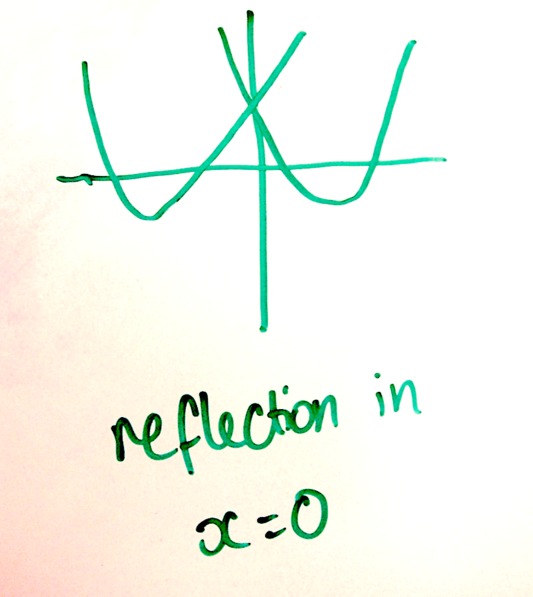 reflection in
x=0